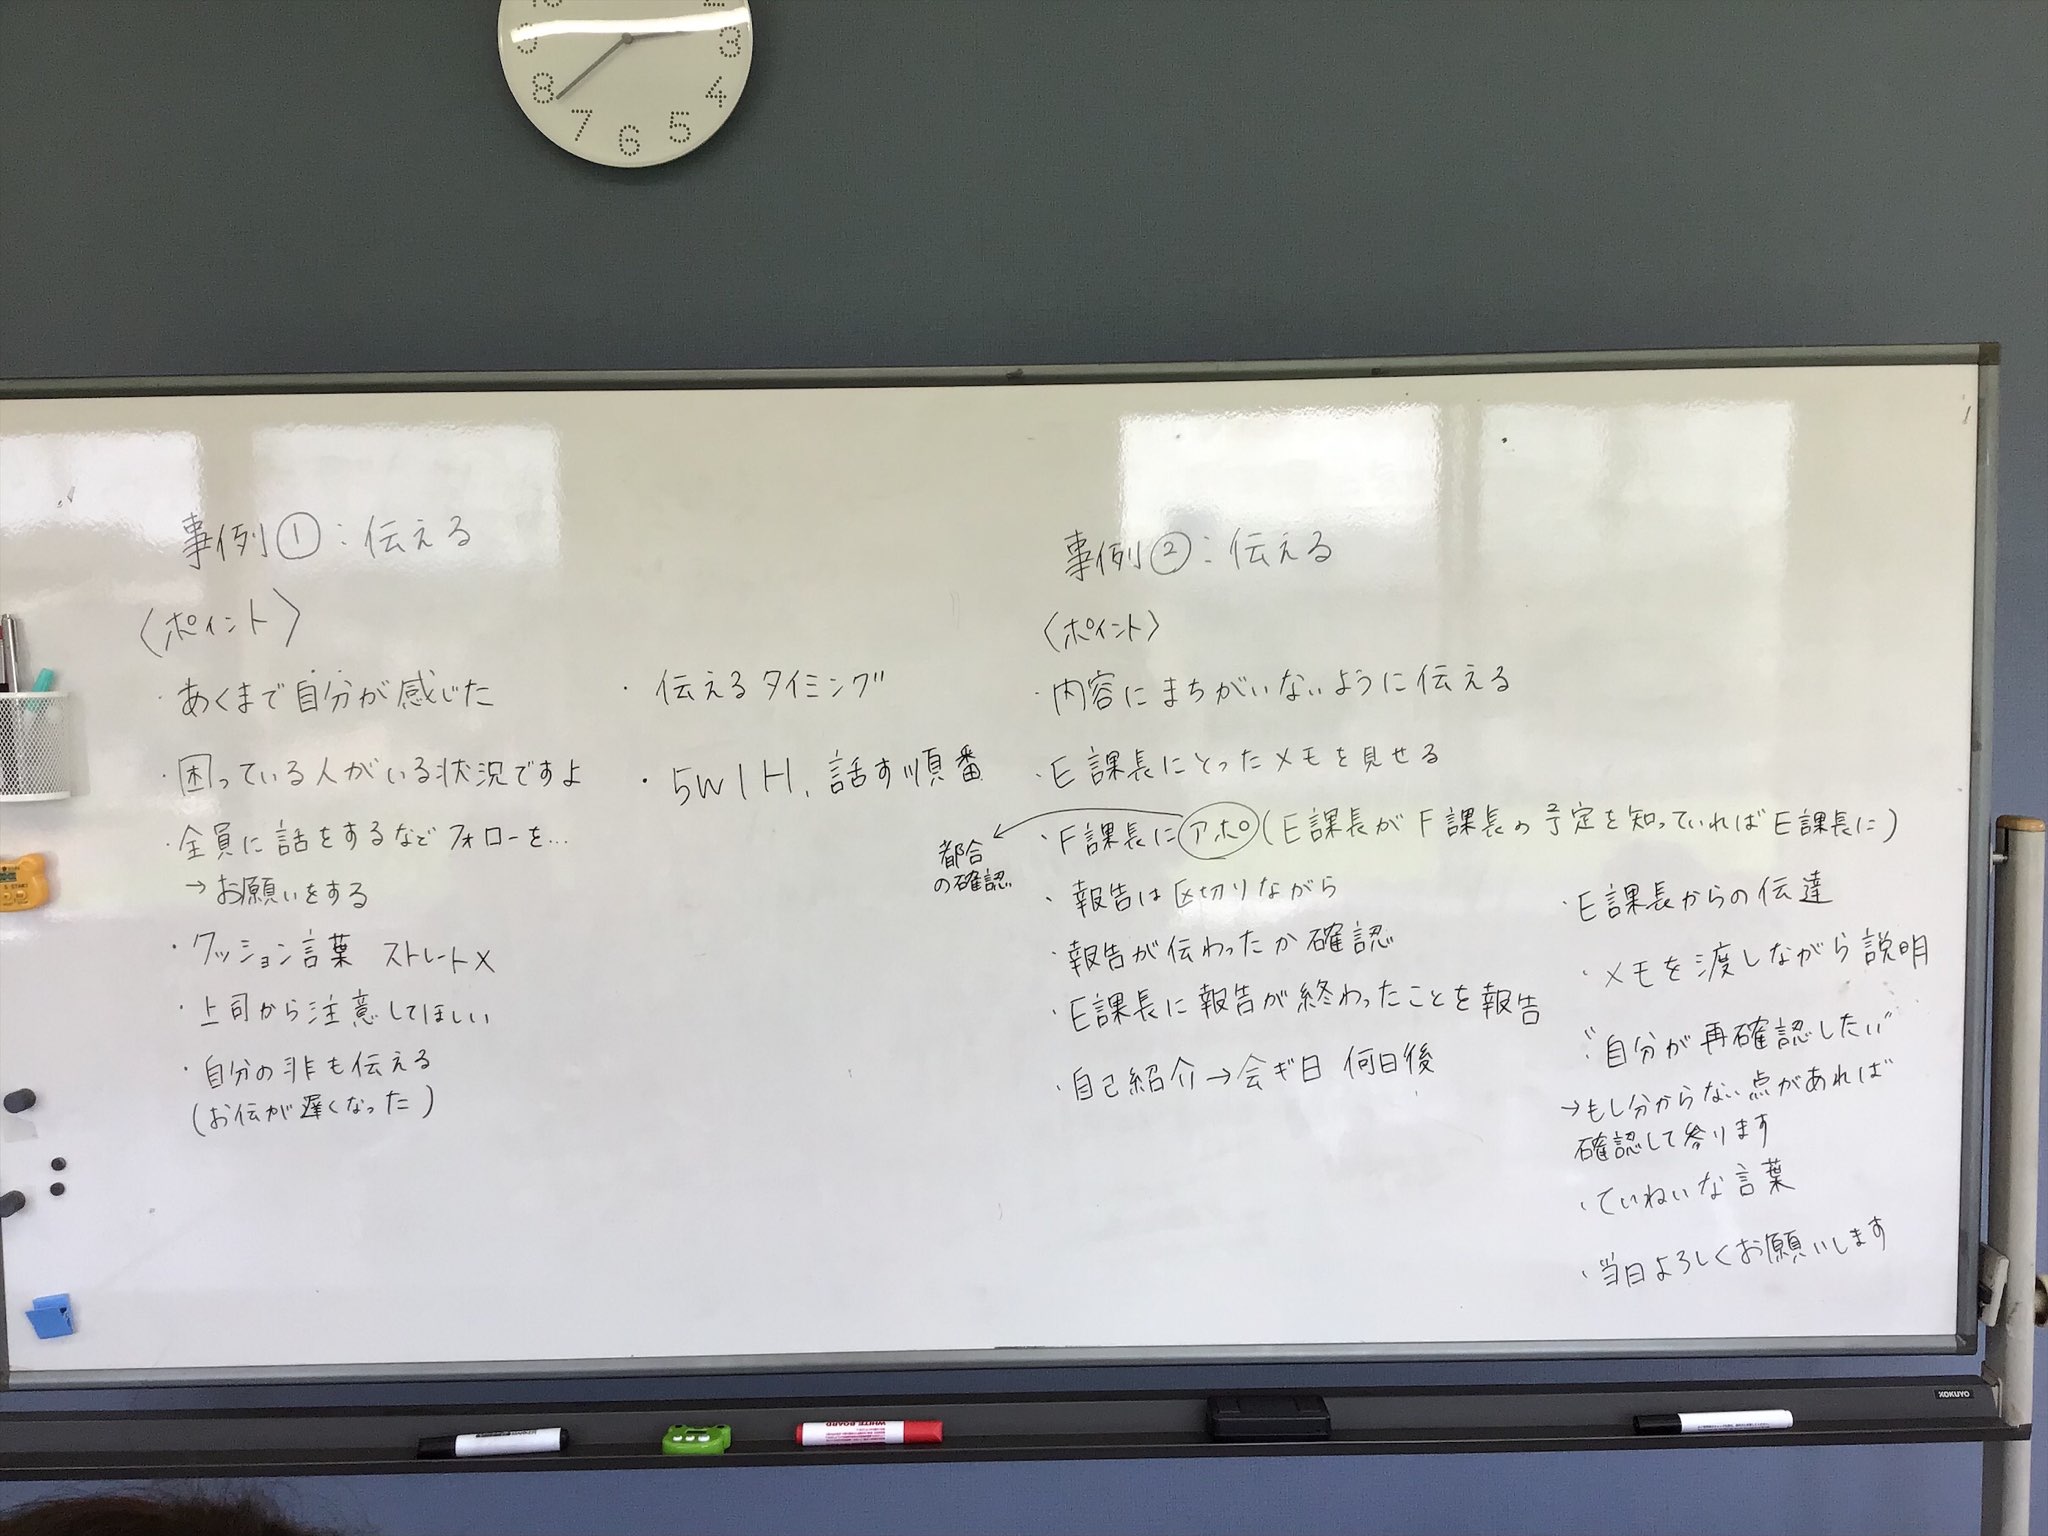 事例①：伝える
〈ポイント〉
・あくまで自分が感じた
・困っている人がいる状況ですよ
・全員に話をするなどフォローを…
→お願いをする
・クッション言葉 ストレート×
・上司から注意してほしい
・自分の非も伝える
(お伝が遅くなった)
・伝えるタイミング
・5W1H、話す順番
事例②：伝える
〈ポイント〉
・内容にまちがいないように伝える
・E課長にとったメモを見せる
・F課長にアポ(E課長がF課長の予定を知っていればE課長に)
都合
の確認
・報告は区切りながら
・報告が伝わったか確認
・E課長に報告が終わったことを報告
・自己紹介→会ギ日 何日後
・E課長からの伝達
・メモを渡しながら説明
・"自分が再確認したい"
→もし分からない点があれば
確認して参ります
・ていねいな言葉
・当日よろしくお願いします
KOKUYO
WHITE BOARD
10
2
9
3
8
4
7
6
5